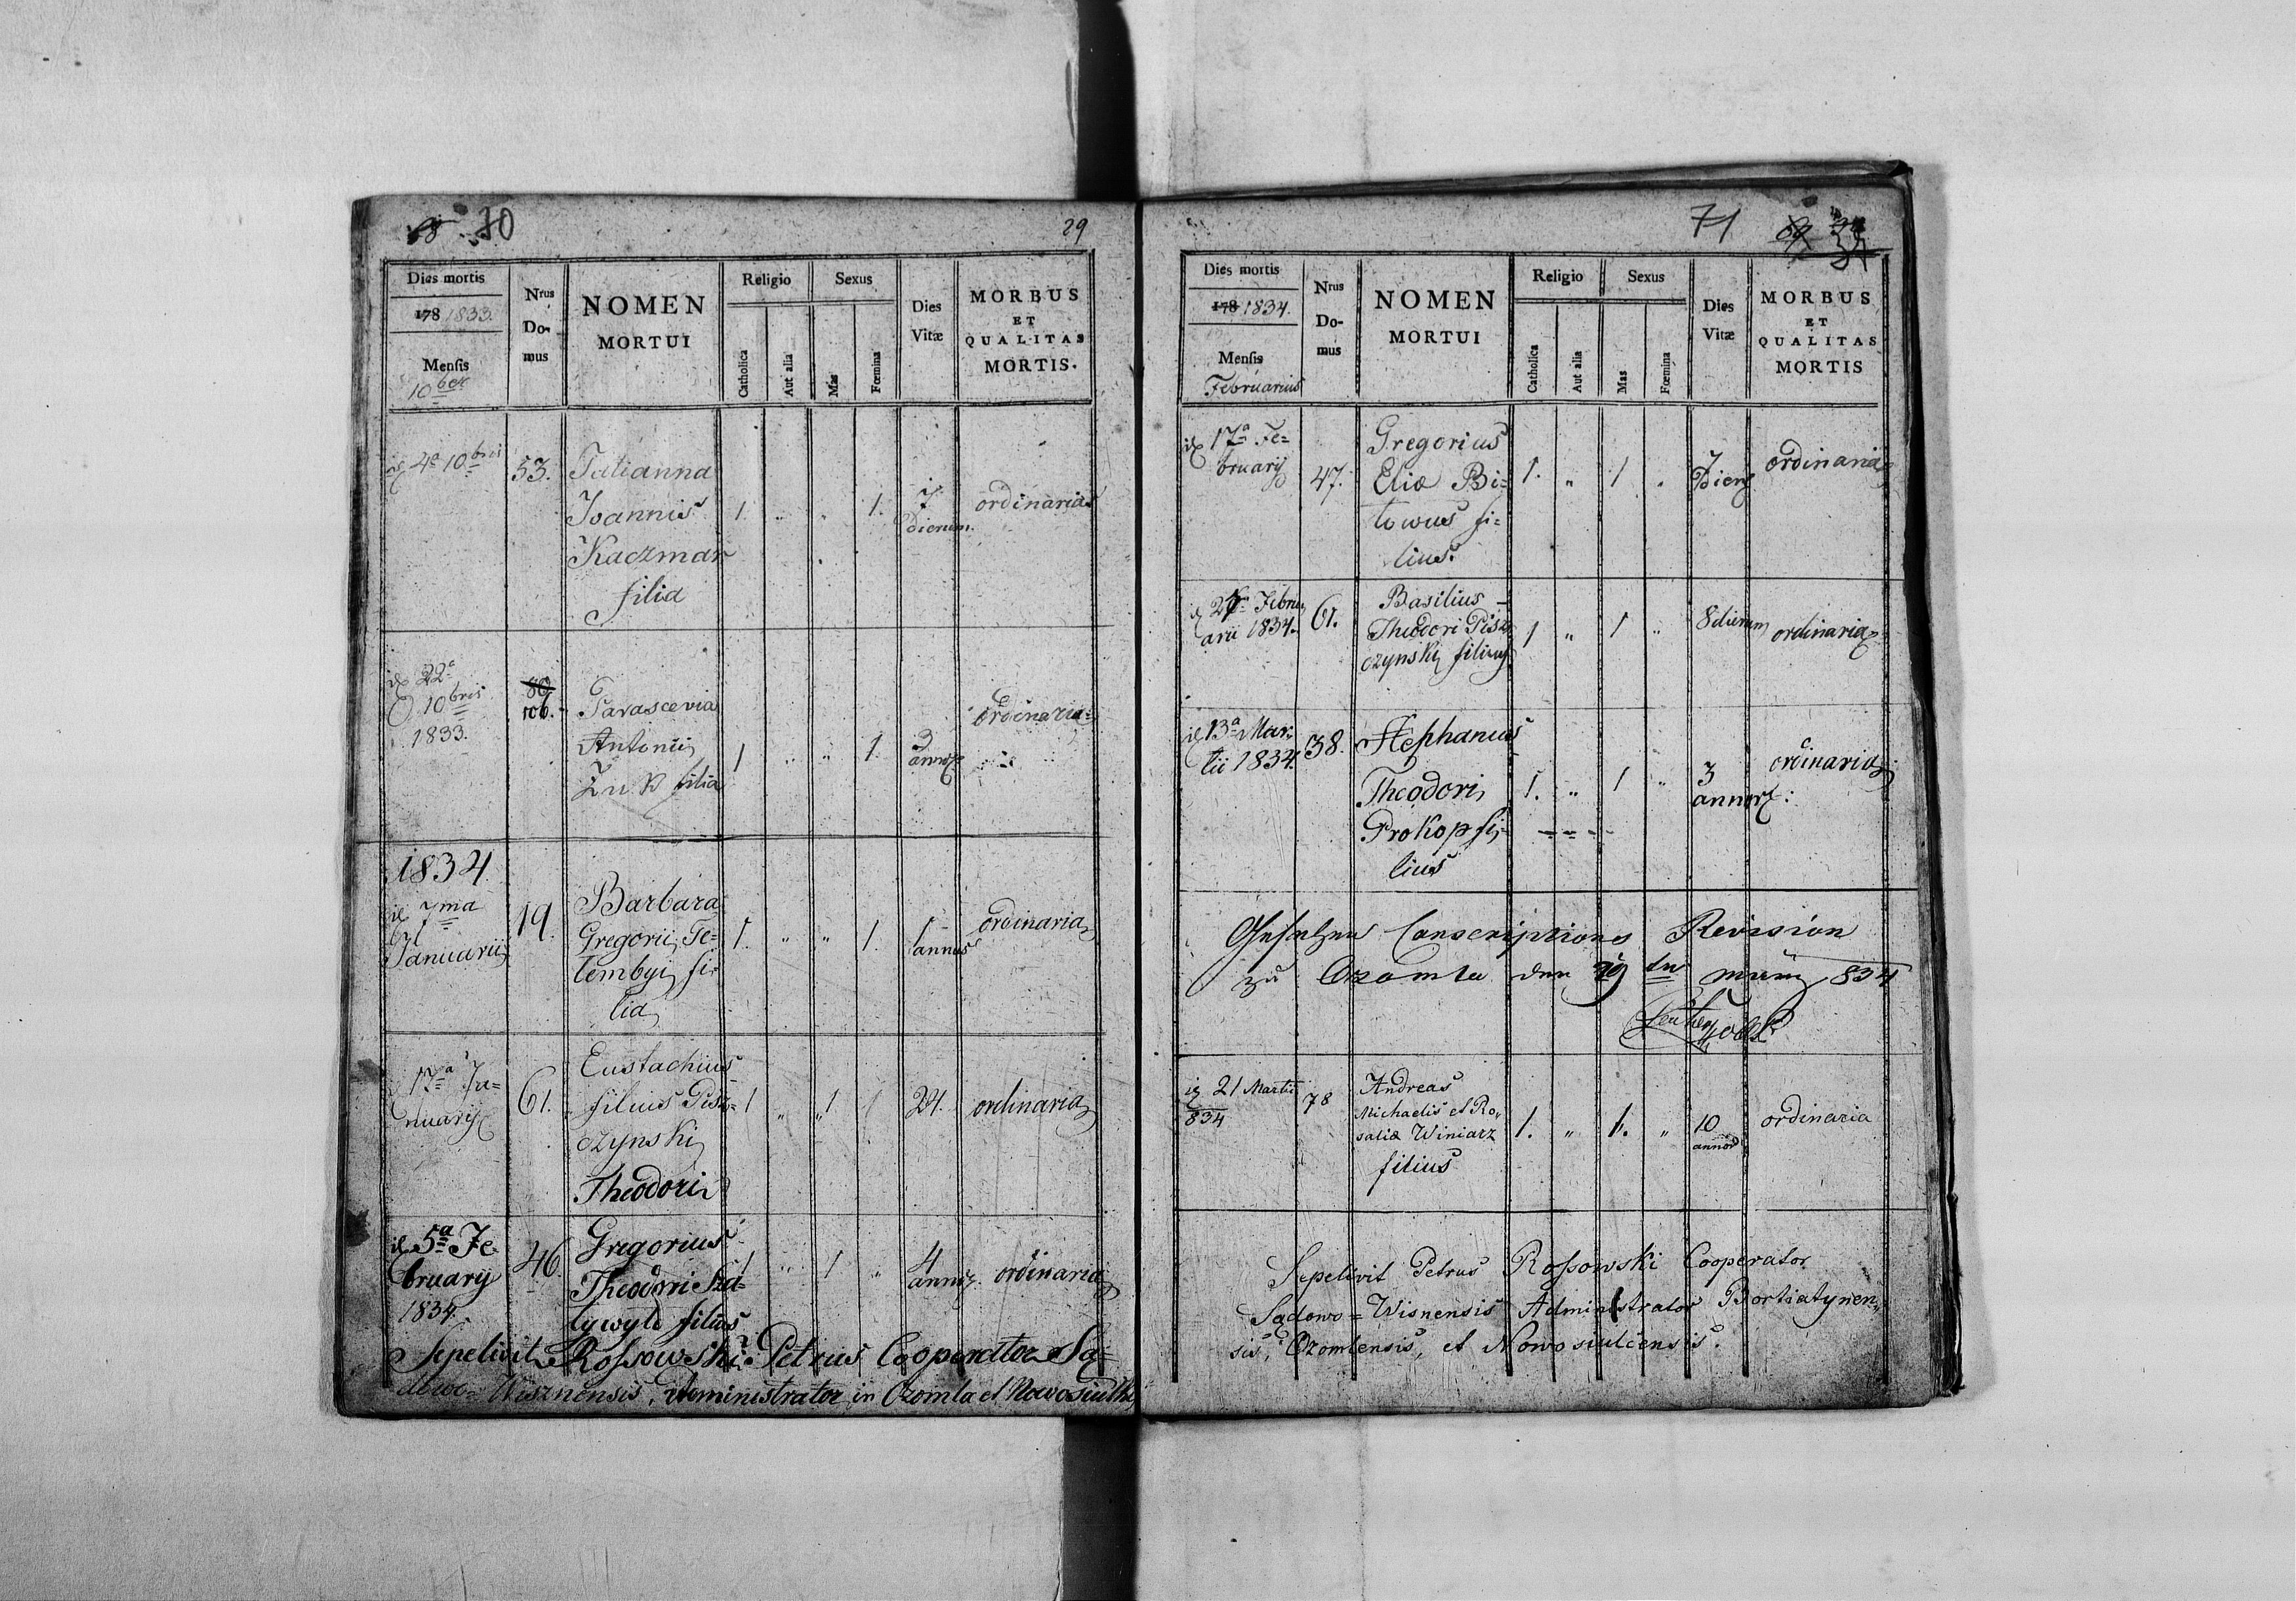 70 29
Dies mortis
178 1833.
Mensis
10ber
Nrus Do-mus
NOMEN
MORTUI
Religio
Catholica
Aut alia
Sexus
Mas
Fœmina
Dies Vitæ
MORBUS
ET
QUALITAS
MORTIS.
4a 10bris 53. Tatianna
Joannis 1. „ „ 1. 7 dierum. ordinaria
Kaczmar
filia
22a
10bris
1833.
80
106. Parascevia
Antonii
Żuk filia 1 „ „ 1. 3 annor ordinaria
1834
7ma
Januarii 19. Barbara
Gregorii Te=
lembyi fi=
lia 1. „ „ 1. 1 annus ordinaria
17a Ja=
nuarij 61. Eustachius
filius Pisz=
czynski
Theodori 1 „ „ 1 24. ordinaria
5a Fe
bruarij
1834. 46. Gregorius
Theodori
filius 1 „ 1 „ 4 annor. ordinaria
Sepelivit Rossowski Petrus Cooperattor Są=
dowo=Wisznensis, Administrator in Ozomla et Nowosiulki
71
Dies mortis
178 1834.
Mensis
Februarius
Nrus Do-mus
NOMEN
MORTUI
Religio
Catholica
Aut alia
Sexus
Mas
Fœmina
Dies Vitæ
MORBUS
ET
QUALITAS
MORTIS
17a Fe=
bruarij 47. Gregorius
Eliæ Bi=
towus fi=
lius. 1. „ 1 „ 7 Dier ordinaria
Febru
arii 1834. 61. Basilius
Theodori Pisz
czynski filius 1 „ 1 „ 8 dierum ordinaria
13a Mar
tii 1834. 38. Stephanus
Theodori
Prokop fi=
lius 1. „ 1 „ 3 annor: ordinaria
Gesehen Conscriptions Revision
zu Ozomla den ten 834
21 Martii
834 78 Andreas
Michaelis et Ro=
saliæ Winiarz
filius 1. „ 1. „ 10 annor ordinaria
Sepelivit Petrus Rossowski Cooperator
Sądowo=Wisnensis Administrator Bortiatynen=
sis, Ozomlensis, et Nowosiulcensis.